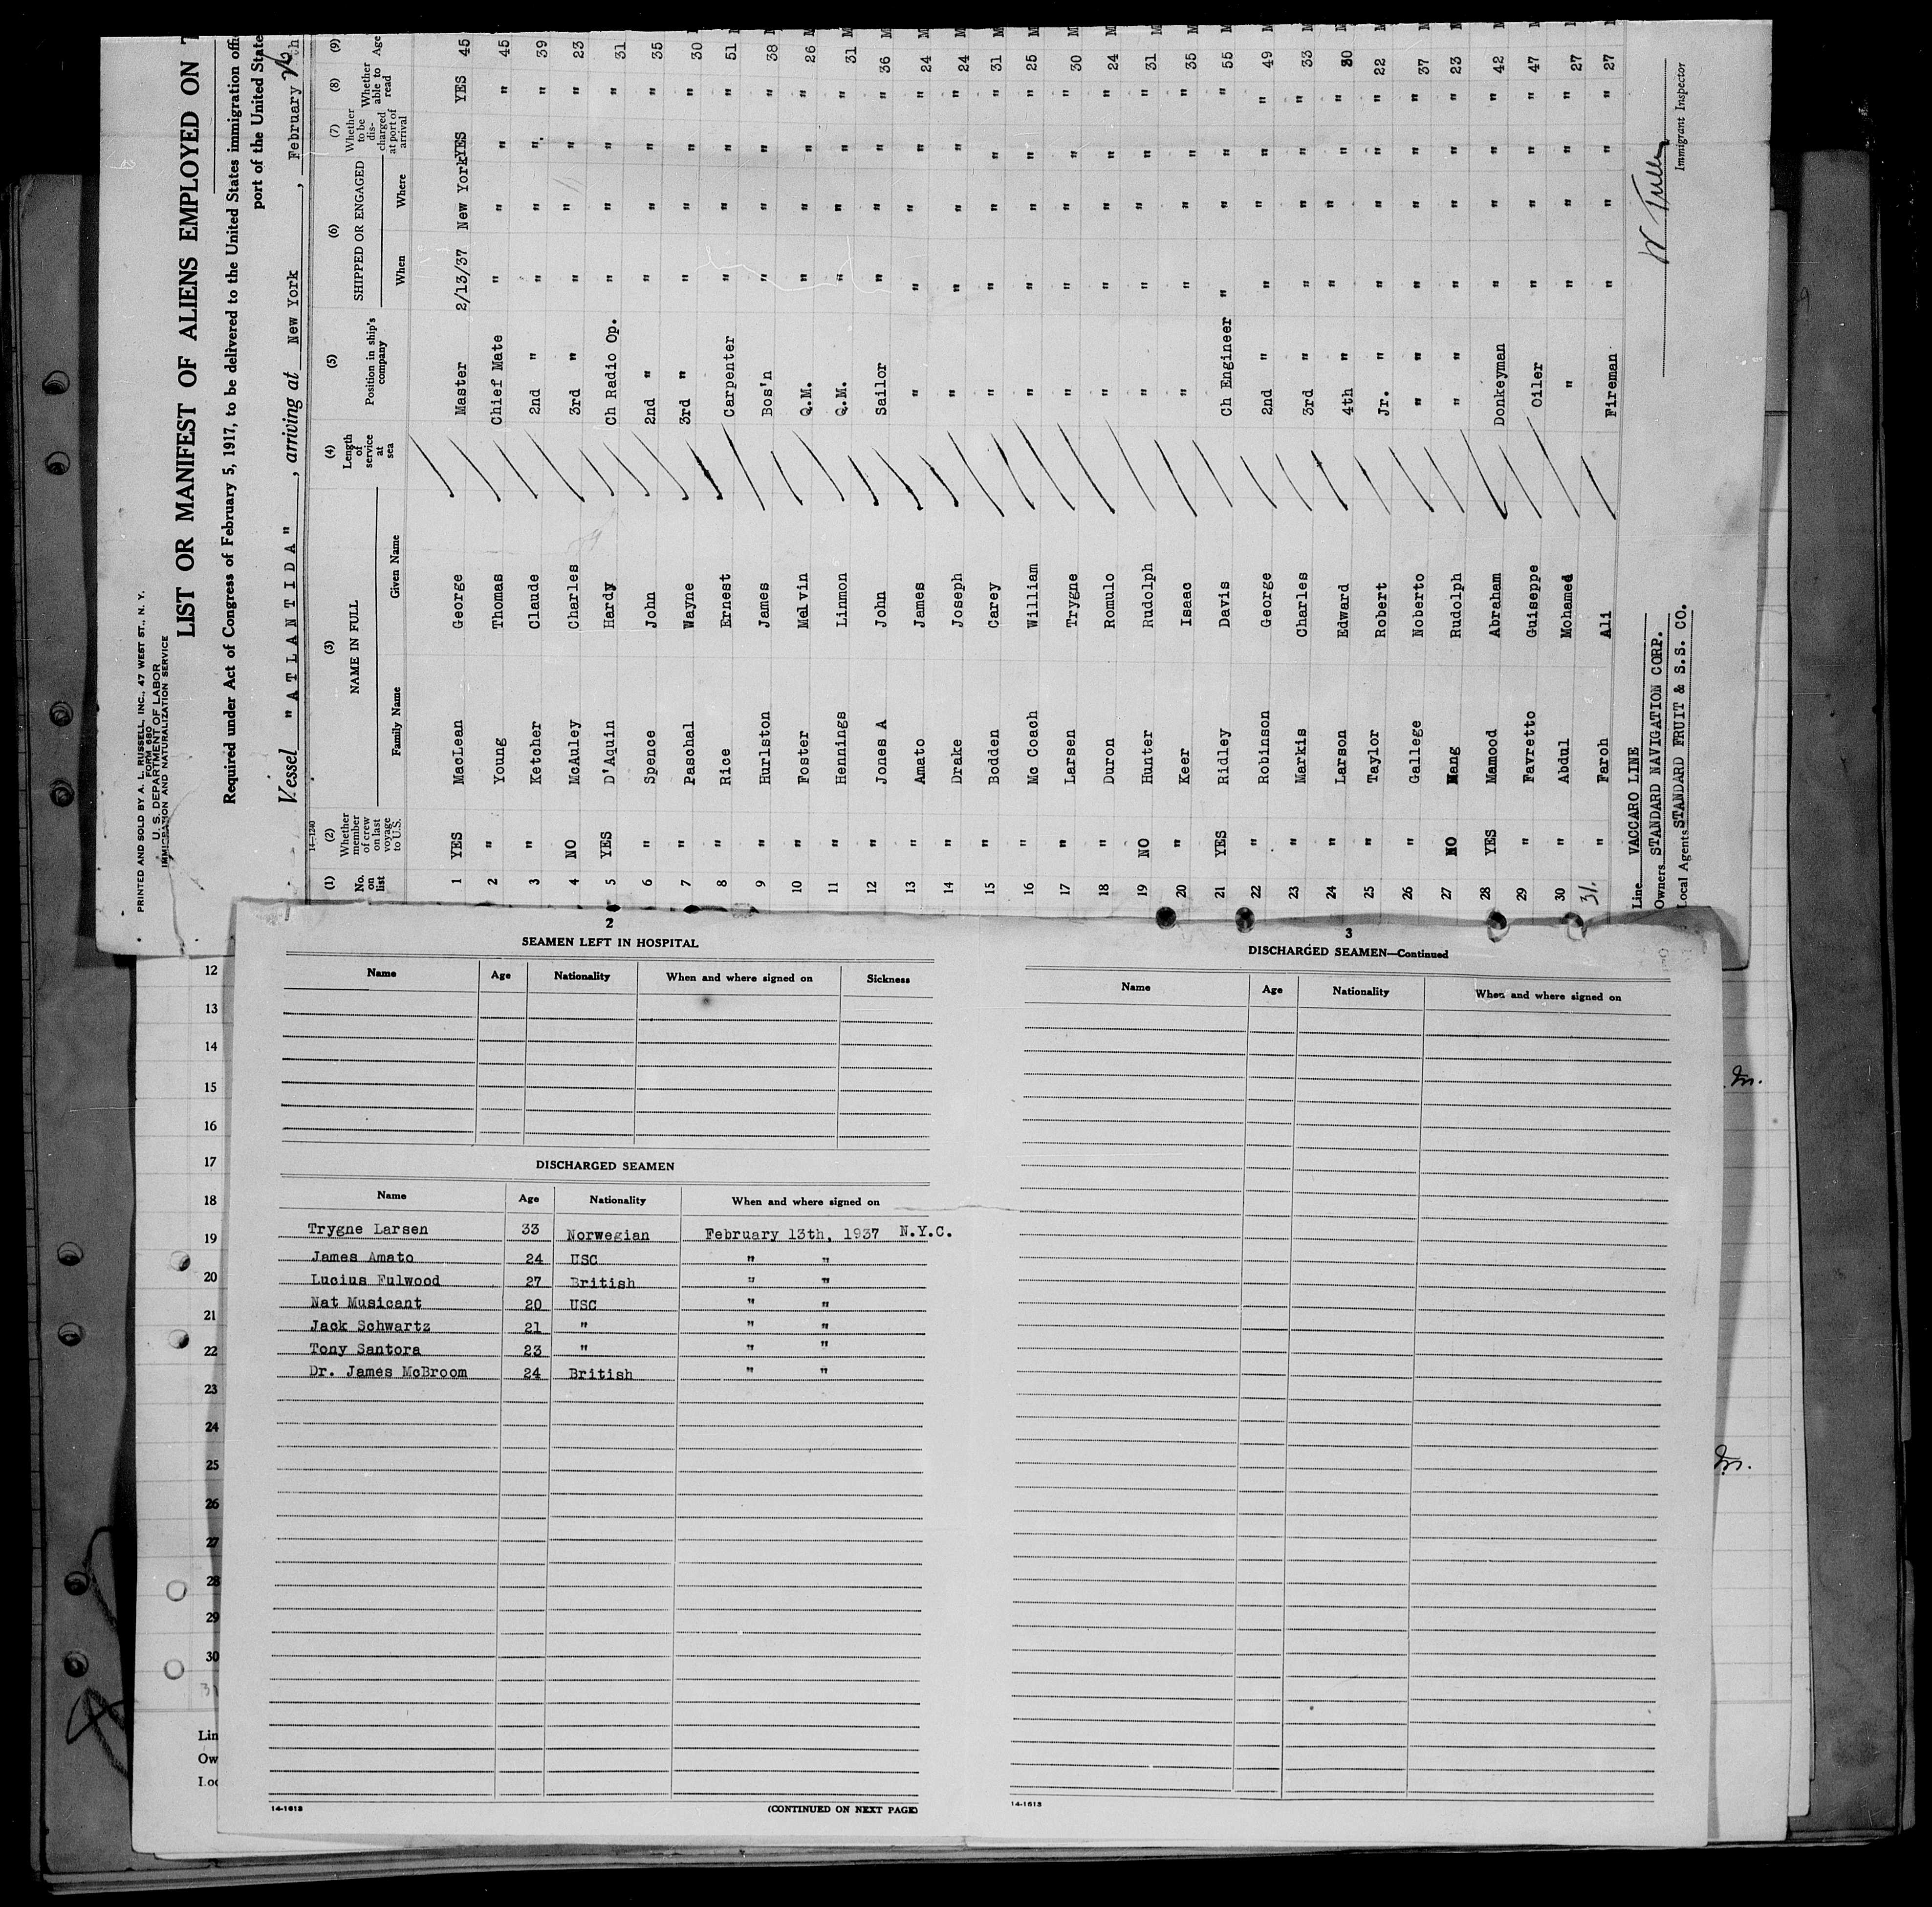 PRINTED AND SOLD BY A. L. RUSSELL, INC., 47 WEST ST., N. Y.
FORM 680
U. S. DEPARTMENT OF LABOR
IMMIGRATION AND NATURALIZATION SERVICE
LIST OR MANIFEST OF ALIENS EMPLOYED ON
Required under Act of Congress of February 5, 1917, to be delivered to the United States immigration
port of the United State
Vessel "ATLANTIDA", arriving at New York, February th
14-1240
(1) (2) (3) (4) (5) (6) (7) (8) (9)
No. on list Whether member of crew on last voyage to U.S. NAME IN FULL Length of service at sea Position in ship's company SHIPPED OR ENGAGED Whether to be discharged at port of arrival Whether able to read Age
Family Name Given Name When Where
1 YES MacLean George Master 2/13/37 New York YES YES 45
2 " Young Thomas Chief Mate " " " " 45
3 " Ketcher Claude 2nd " " " " " 39
4 NO McAuley Charles 3rd " " " " " 23
5 YES D'Aquin Hardy Ch Radio Op. " " " " 31
6 " Spence John 2nd " " " " " 35
7 " Paschal Wayne 3rd " " " " " 30
8 " Rice Ernest Carpenter " " " " 51
9 " Hurlston James Bos'n " " " " 38
10 " Foster Melvin Q.M. " " " " 26
11 " Hennings Linmon Q.M. " " " " 31
12 " Jones A John Sailor " " " " 36
13 " Amato James " " " " " 24
14 " Drake Joseph " " " " " 24
15 " Bodden Carey " " " " " 31
16 " Mc Coach William " " " " " 25
17 " Larsen Trygne " " " " " 30
18 " Duron Romulo " " " " " 24
19 NO Hunter Rudolph " " " " " 31
20 " Keer Isaac " " " " " 35
21 YES Ridley Davis Ch Engineer " " " " 55
22 " Robinson George 2nd " " " " " 49
23 " Markis Charles 3rd " " " " " 33
24 " Larson Edward 4th " " " " " 30
25 " Taylor Robert Jr. " " " " " 22
26 " Gallege Noberto " " " " " 37
27 NO Nang Rudolph " " " " " 23
28 YES Mamood Abraham Donkeyman " " " " 42
29 " Favretto Guiseppe Oiler " " " " 47
30 " Abdul Mohamed " " " " " 27
31. " Faroh Ali Fireman " " " " 27
Line VACCARO LINE
Owners STANDARD NAVIGATION CORP.
Local Agents STANDARD FRUIT & S.S. CO.
Immigrant Inspector
2
SEAMEN LEFT IN HOSPITAL
Name Age Nationality When and where signed on Sickness
DISCHARGED SEAMEN
Name Age Nationality When and where signed on
Trygne Larsen 33 Norwegian February 13th, 1937 N.Y.C.
James Amato 24 USC " "
Lucius Fulwood 27 British " "
Nat Musicant 20 USC " "
Jack Schwartz 21 " " "
Tony Santora 23 " " "
Dr. James McBroom 24 British " "
14-1613 (CONTINUED ON NEXT PAGE)
3
DISCHARGED SEAMEN—Continued
Name Age Nationality When and where signed on
14-1613
12
13
14
15
16
17
18
19
20
21
22
23
24
25
26
27
28
29
30
31
Lin
Ow
Loc